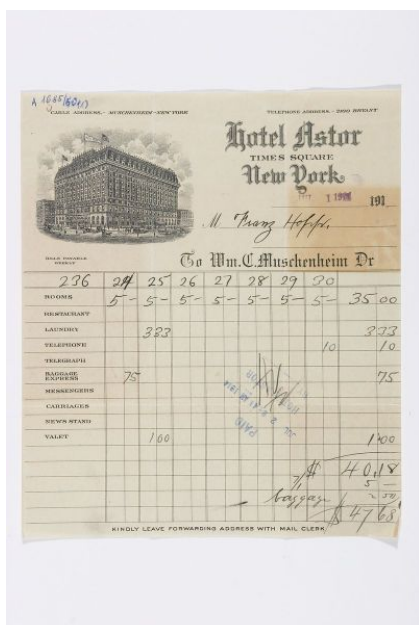 CABLE ADDRESS, - MUSCHENHEIM - NEW YORK
TELEPHONE ADDRESS, - 2900 BRYANT
Hotel Astor
TIMES SQUARE
New York,
191
M Franz Hopp.
BILLS PAYABLE
WEEKLY
To Wm. C. Muschenheim Dr
236 24 25 26 27 28 29 30
ROOMS 5- 5- 5- 5- 5- 5- 5- 35 00
RESTAURANT
LAUNDRY 333 333
TELEPHONE 10 10
TELEGRAPH
BAGGAGE EXPRESS 75 75
MESSENGERS
CARRIAGES
NEWS STAND
VALET 100 1 00
$ 40,18
5 -
baggage 2 50
$ 47 68
PAID
KINDLY LEAVE FORWARDING ADDRESS WITH MAIL CLERK